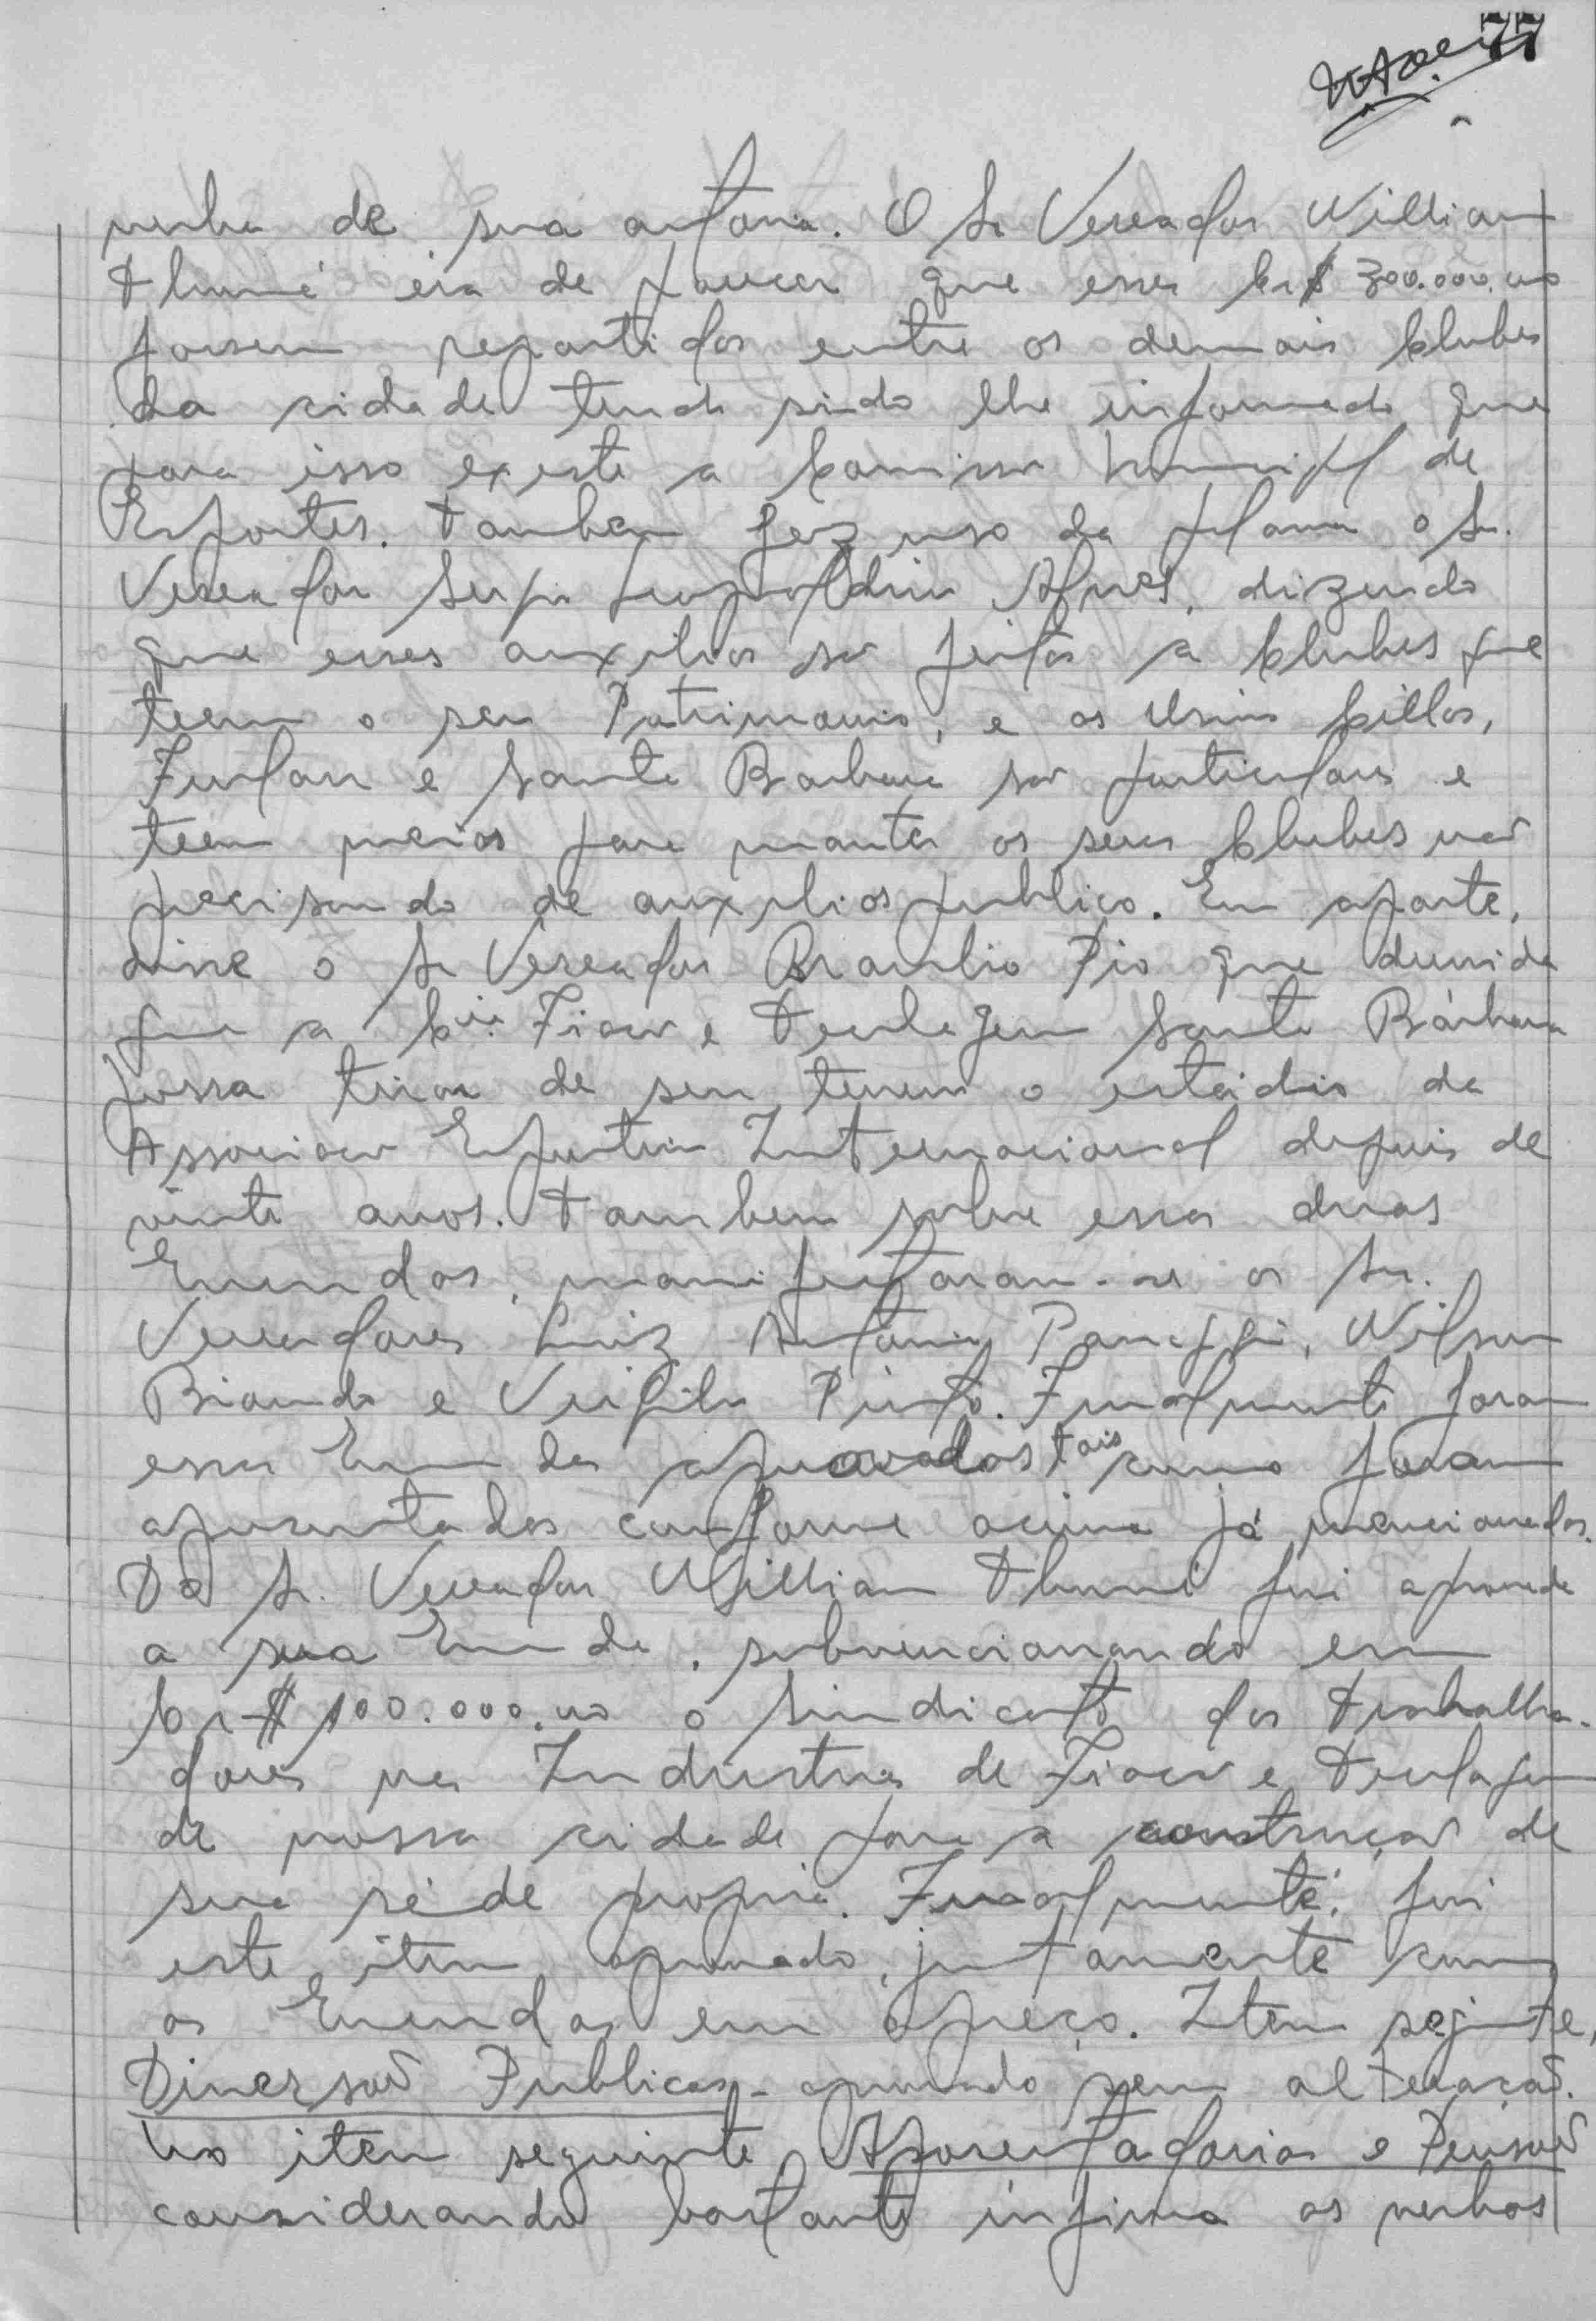 77
verba de sua autoria. O Sr Vereador Willian
Thumé éra de parecer que esses Cr$ 300.000,00
fossem repartidos entre os demais Clubes
da cidade tendo sindo lhe informado que
para isso existe a Comissão Municipal de
Esportes. Tambem fez uso da palavra o Sr.
Vereador Sergio Leopoldino Alves, dizendo
que esses auxilios são feitos a Clubes que
teem o seu Patrimonio, e as Usinas Cillos,
Furlan e Santa Barbara são particulares e
teem meios para manter os seus Clubes não
precisando de auxilios publico. Em aparte,
disse o Sr Vereador Braulio Pio que duvida
que a Cia. Fiação e Tecelagem Santa Bárbara
possa tirar de seu terreno o estádio da
Associação Esportiva Internacional depois de
vinte anos. Tambem sobre essas duas
Emendas, manifestaram-se os Srs.
Vereadores Luiz Antonio Panaggi, Wilson
Biando e Virgilio Pinto. Finalmente foram
essas Emendas aprovadas tais como foram
apresentadas conforme acima já mencionadas.
Do Sr. Vereador Willian Thumé foi aprovada
a sua Emenda, subvencionando em
Cr$ 100.000,00 o Sindicato dos Trabalha-
dores na Industria de Fiação e Tecelagem
de nossa cidade para a construção de
sua séde propria. Finalmente, foi
este item aprovado, juntamente com
as Emendas em apreço. Item seguinte,
Diversões Publicas - aprovado sem alteração.
No item seguinte Aposentadorias e Pensões
considerando bastante infima as verbas